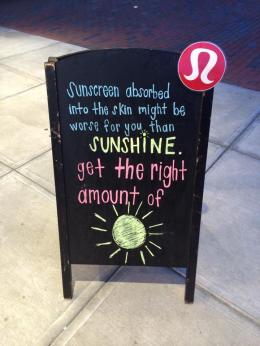 Sunscreen absorbed
into the skin might be
worse for you than
SUNSHINE.
get the right
amount of